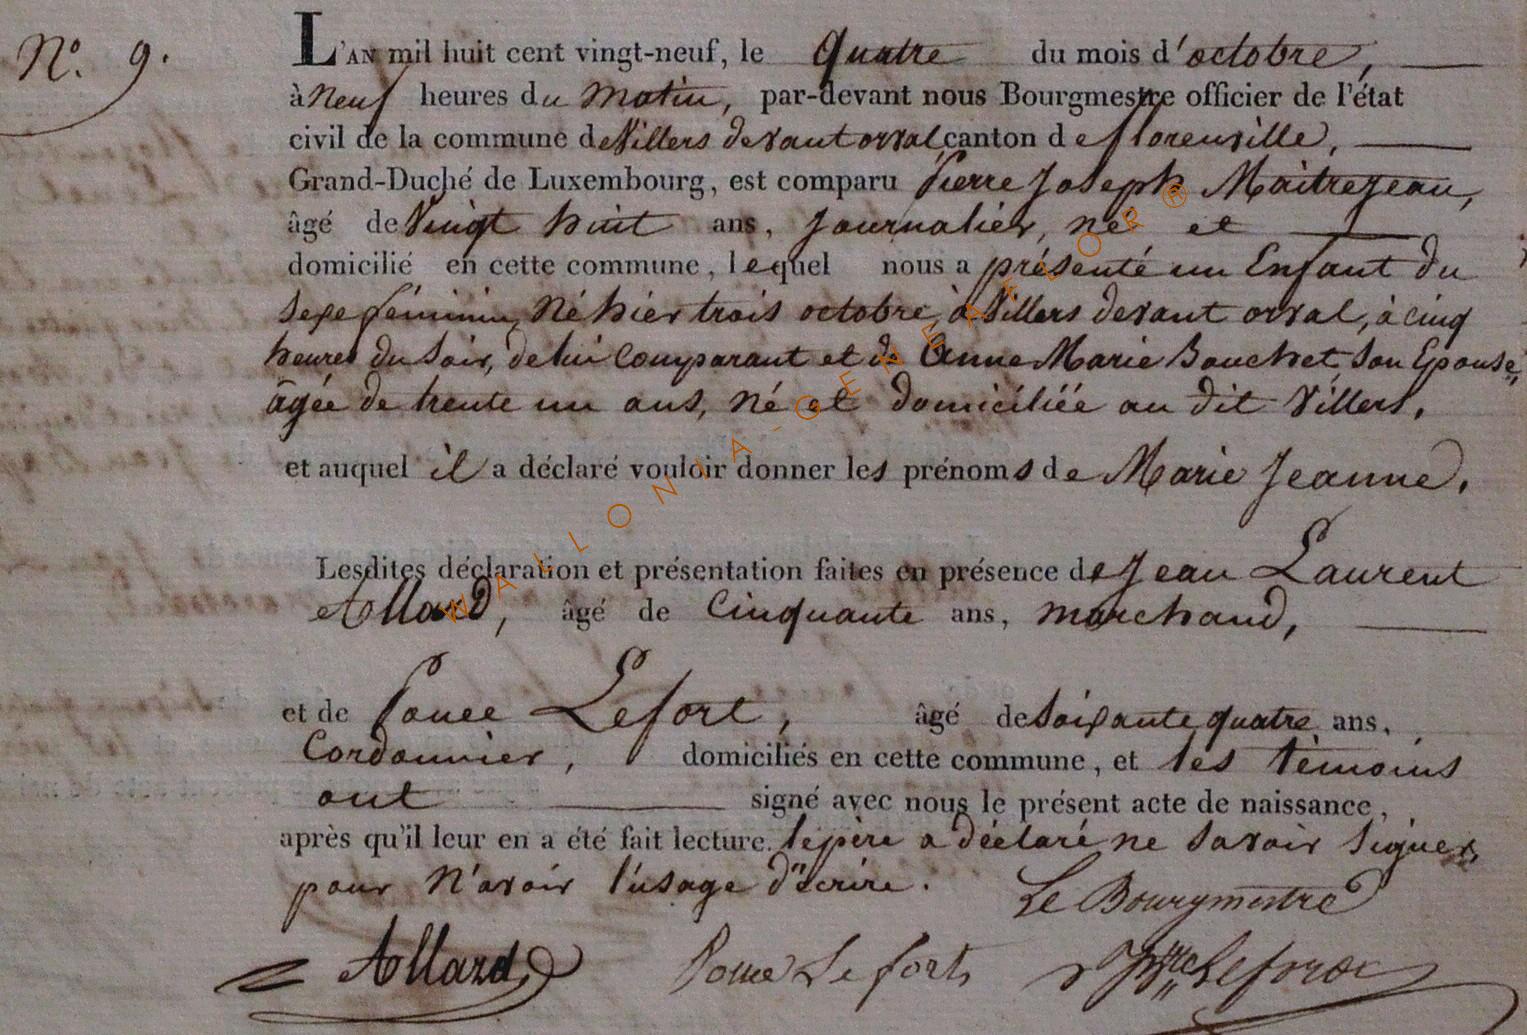 N.o 9.
L'AN mil huit cent vingt-neuf, le quatre du mois d'octobre,
à neuf heures du matin, par-devant nous Bourgmestre officier de l'état
civil de la commune de Villers devant orval, canton de florenville,
Grand-Duché de Luxembourg, est comparu Pierre Joseph Maitrejean,
âgé de Vingt huit ans, Journalier, né et
domicilié en cette commune, lequel nous a présenté un Enfant du
Sexe féminin, Né hier trois octobre, à Villers devant orval, à cinq
heures du Soir, de lui Comparant et de Anne Marie Bouchet, Son Epouse,
âgée de trente un ans, Né et domiciliée au dit Villers.
et auquel il a déclaré vouloir donner les prénoms de Marie Jeanne.
Lesdites déclaration et présentation faites en présence de Jean Laurent
Allard, âgé de Cinquante ans, marchand,
et de Ponce Lefort, âgé de Soixante quatre ans,
Cordonnier, domiciliés en cette commune, et les témoins
ont signé avec nous le présent acte de naissance,
après qu'il leur en a été fait lecture. le père a déclaré ne Savoir Signer,
pour N'avoir l'usage d'écrire. Le Bourgmestre
Allard Ponce Lefort
WALLONIA-GENEALOR®